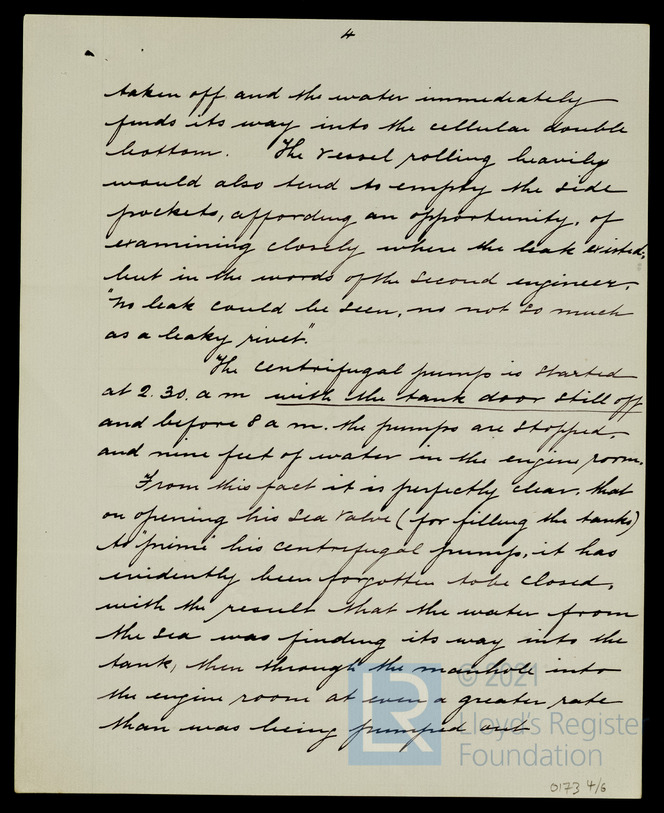 4
taken off and the water immediately
finds its way into the cellular double
bottom. The vessel rolling heavily
would also tend to empty the side
pockets, affording an opportunity, of
examining closely where the leak existed,
but in the words of the second engineer.
"no leak could be seen, no not so much
as a leaky rivet".
The centrifugal pump is started
at 2.30. a m with the tank door still off
and before 8 a m. the pumps are stopped.
and nine feet of water in the engine room.
From this fact it is perfectly clear, that
on opening his sea valve (for filling the tanks)
to "prime" his centrefugal pump, it has
evidently been forgotten to be closed,
with the result that the water from
the sea was finding its way into the
tank, then through the manhole into
the engine room at even a greater rate
than was being pumped out
© 2021
LR
Lloyd's Register
Foundation
0173 4/6